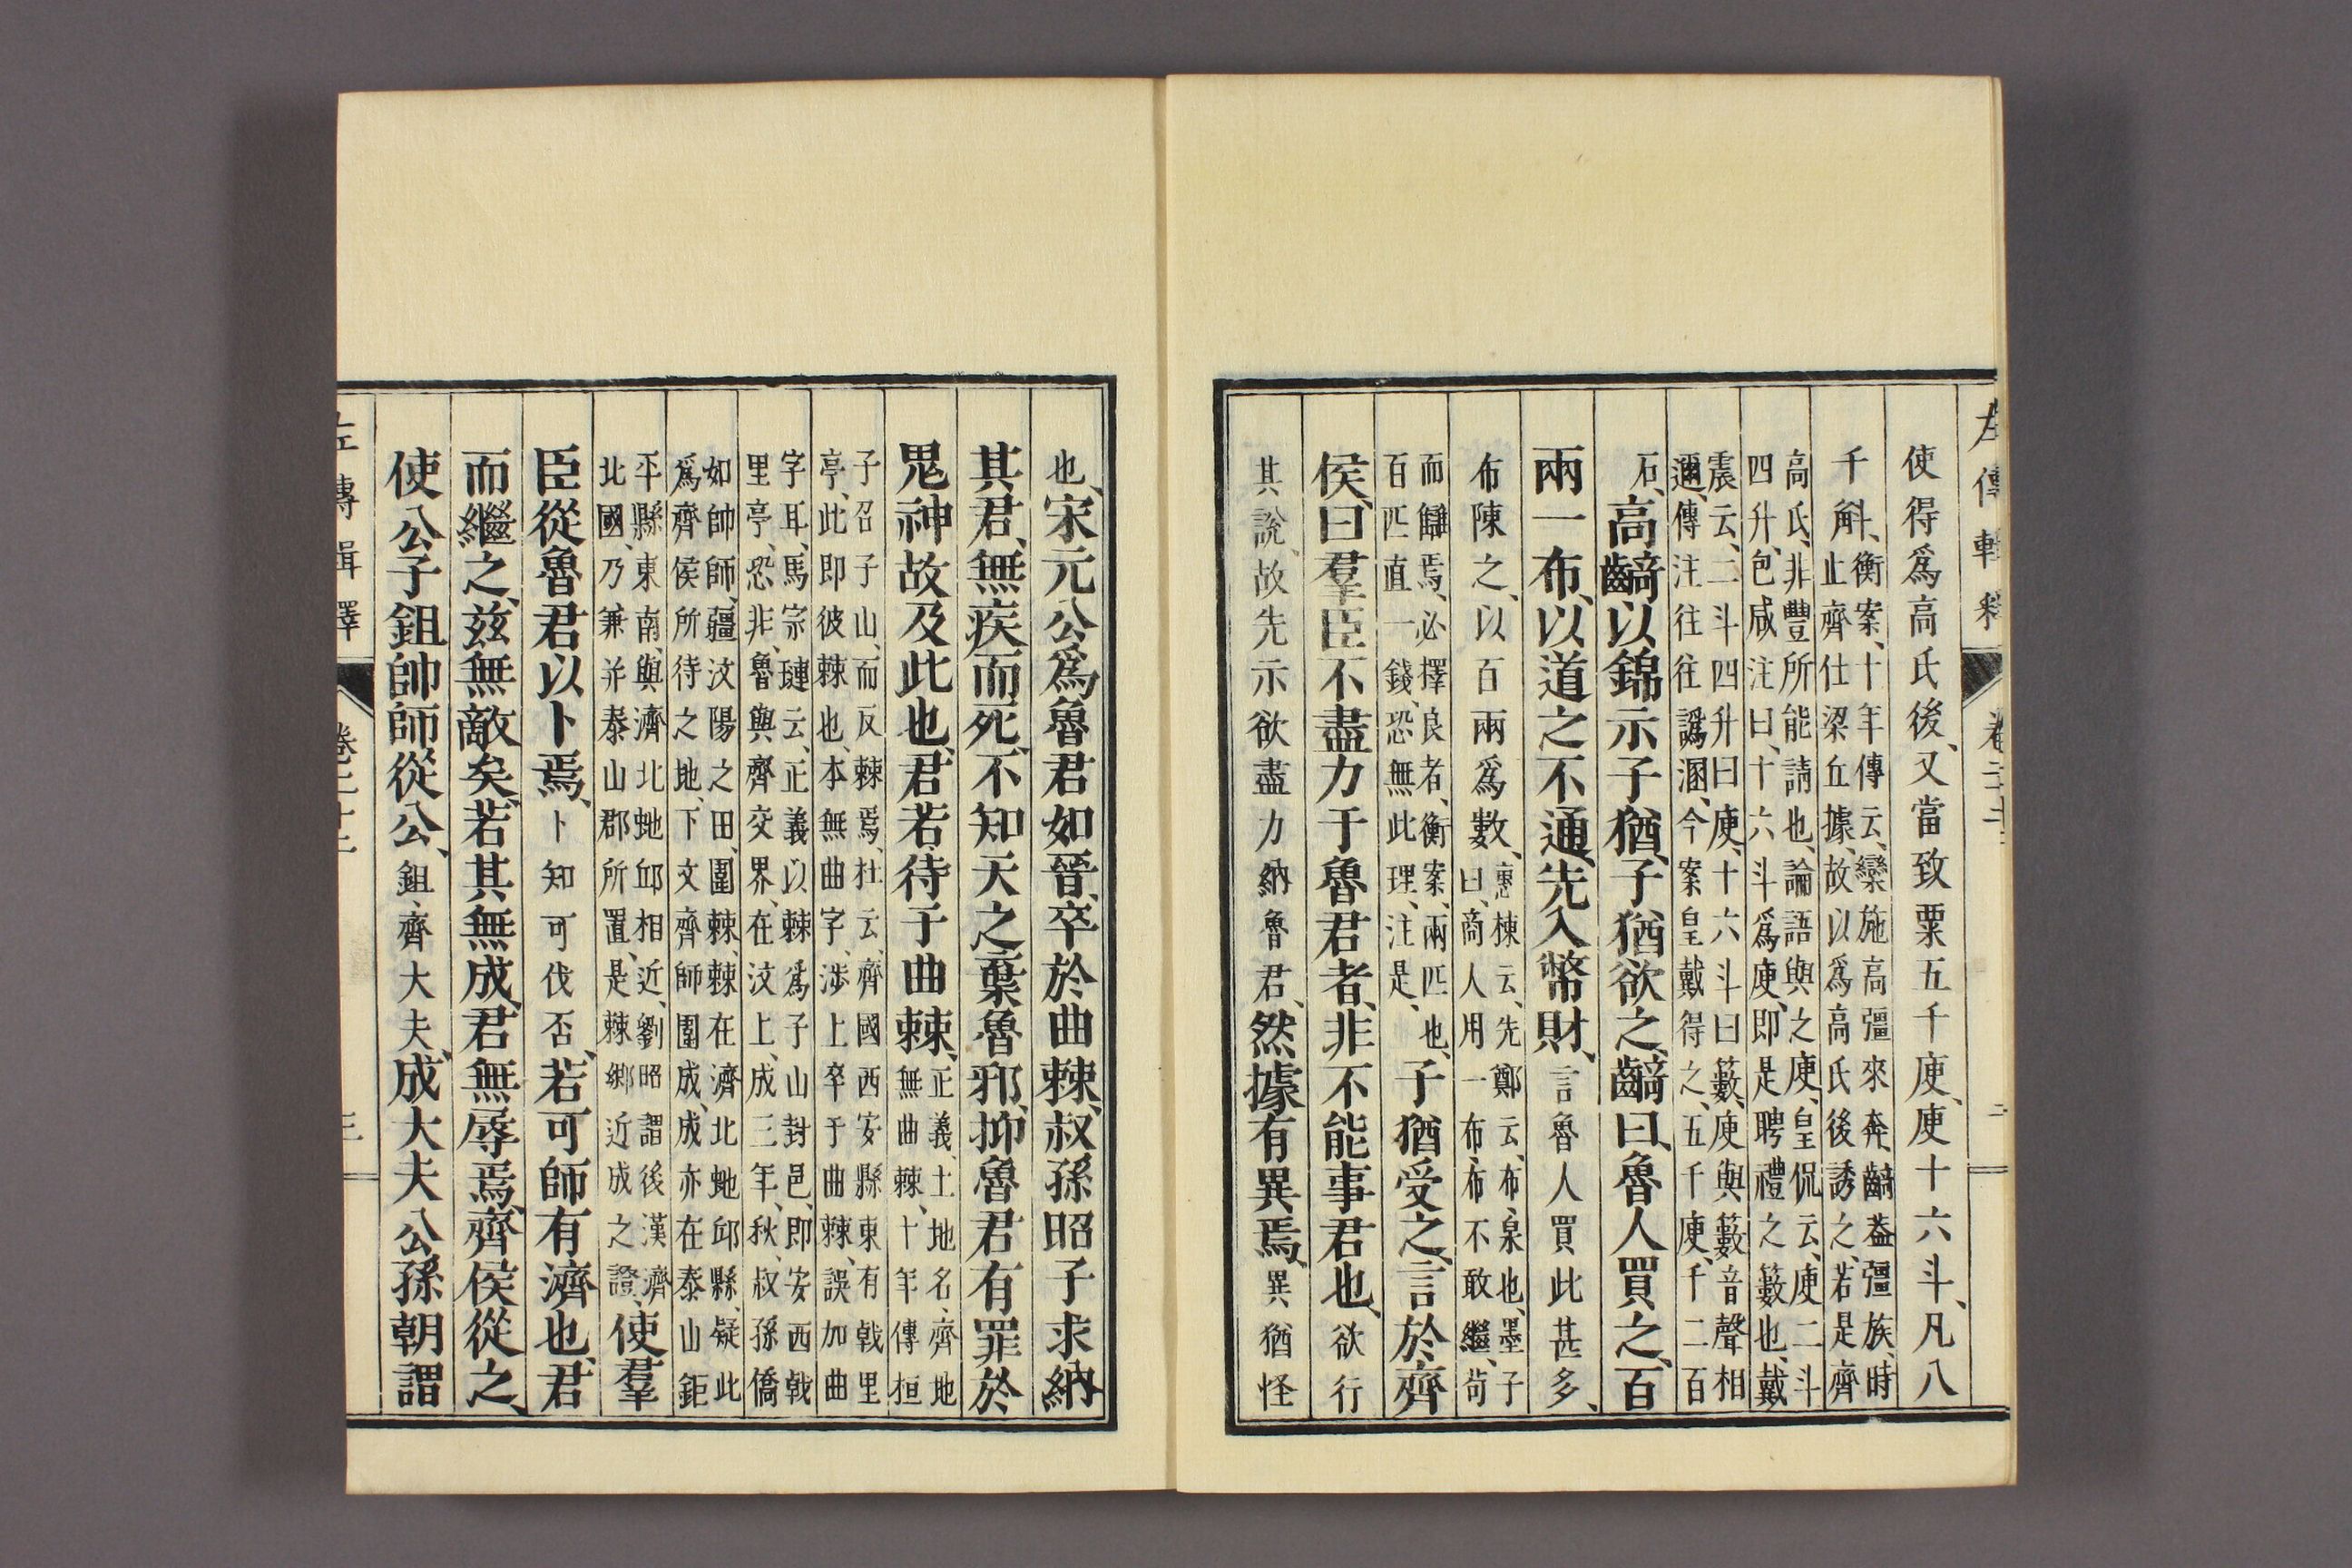 左傳輯釋 卷二十二 二
使得爲高氏後、又當致粟五千庾、庾十六斗、凡八
千斛、
衡案、十年傳云、欒施高彊來奔、齮葢彊族、時
止齊仕梁丘據、故以爲高氏後誘之、若是齊
高氏、非豐所能請也、論語與之庾、皇侃云、庾二斗
四升、包咸注曰、十六斗爲庾、即是聘禮之籔也、戴
震云、二斗四升曰庾、十六斗曰籔、庾與籔音聲相
邇、傳注往往譌溷、今案皇戴得之、五千庾、千二百
石、高齮以錦示子猶、子猶欲之、齮曰、魯人買之、百
兩一布、以道之不通、先入幣財、言魯人買此甚多、
布陳之、以百兩爲數、
惠棟云、先鄭云、布、泉也、墨子
曰、商人用一布、布不敢繼、苟
而讎焉、必擇良者、衡案、兩匹也、
百匹直一錢、恐無此理、注是、
子猶受之、言於齊
侯曰、羣臣不盡力于魯君者、非不能事君也、欲行
其說、故先示欲盡力納魯君、然據有異焉、異猶怪
也、宋元公爲魯君如晉、卒於曲棘、叔孫昭子求納
其君、無疾而死、不知天之棄魯邪、抑魯君有罪於
鬼神故及此也、君若待于曲棘、
正義、土地名、齊地
無曲棘、十年傳桓
子召子山、而反棘焉、杜云、齊國西安縣東有戟里
亭、此即彼棘也、本無曲字、涉上卒于曲棘、誤加曲
字耳、馬宗璉云、正義以棘爲子山封邑、即安西戟
里亭、恐非、魯與齊交界、在汶上、成三年、秋、叔孫僑
如帥師、疆汶陽之田、圍棘、棘在濟北蛇邱縣、疑此
爲齊侯所待之地、下文齊師圍成、成亦在泰山鉅
平縣東南、與濟北蛇邱相近、劉昭謂後漢濟
北國、乃兼并泰山郡所置、是棘鄉近成之證、
使羣
臣從魯君以卜焉、卜知可伐否、若可師有濟也、君
而繼之、茲無敵矣、若其無成、君無辱焉、齊侯從之、
使公子鉏帥師從公、鉏、齊大夫、成大夫公孫朝謂
左傳輯釋 卷二十二 三